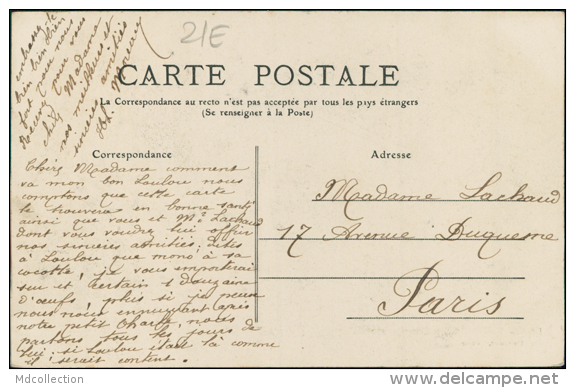 21E
CARTE POSTALE
La Correspondance au recto n'est pas acceptée par tous les pays étrangers
(Se renseigner à la Poste)
Correspondance
Adresse
Chère Madame comment
va mon bon Loulou nous
comptons que cette carte
le trouvera en bonne santé
ainsi que vous et Mr Lachaud
dont vous voudrez lui offrir
nos sincères amitiés; dites
à Loulou que mono à sa
cocotte, je vous
sur et certain 1 douzaine
d'œufs! si je peux
nous nous ennuyons
notre petit Charle, nous
parlons tous les jours de
lui; si Loulou était là comme
il serait content.
embrassez le
bien bien bien
fort pour nous
pour vous
chère Madame
nos meilleurs et
sincères amitiés
Madame Lachaud
17 Avenue Duquesne
Paris
Mdcollection
http://www.delcampe.net